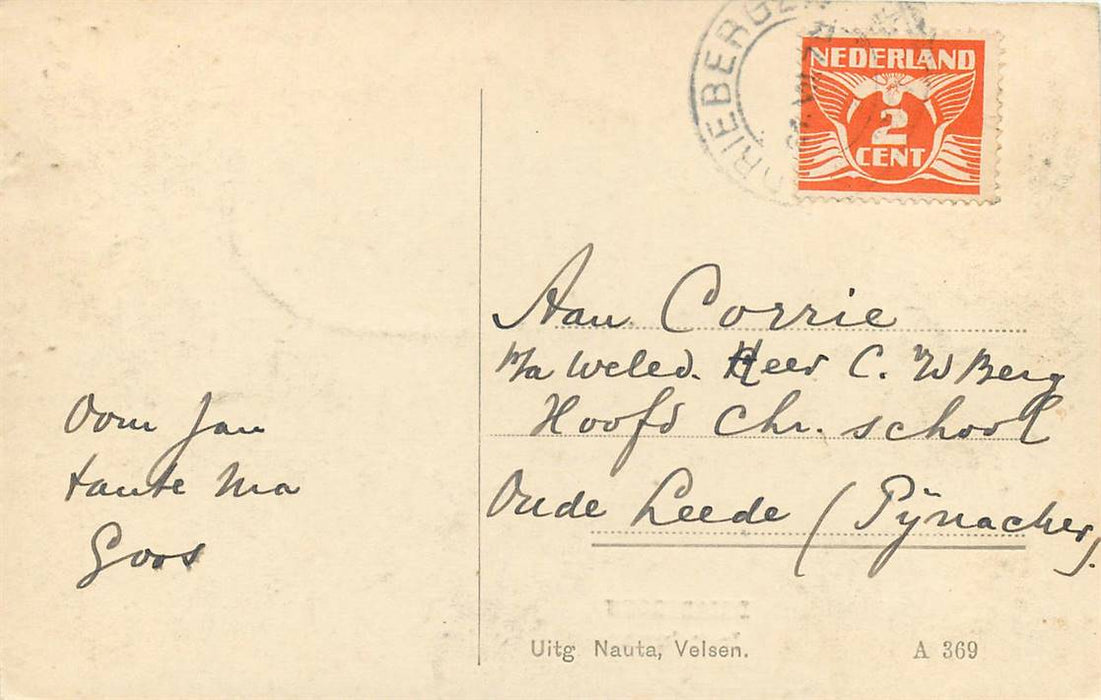 DRIEBERGEN
NEDERLAND
2
CENT
Aan Corrie
p/a Weled. Heer C. W Berg
Hoofd Chr. school
Oude Leede (Pijnacker).
Oom Jan
tante Ma
Goos
Uitg Nauta, Velsen.
A 369